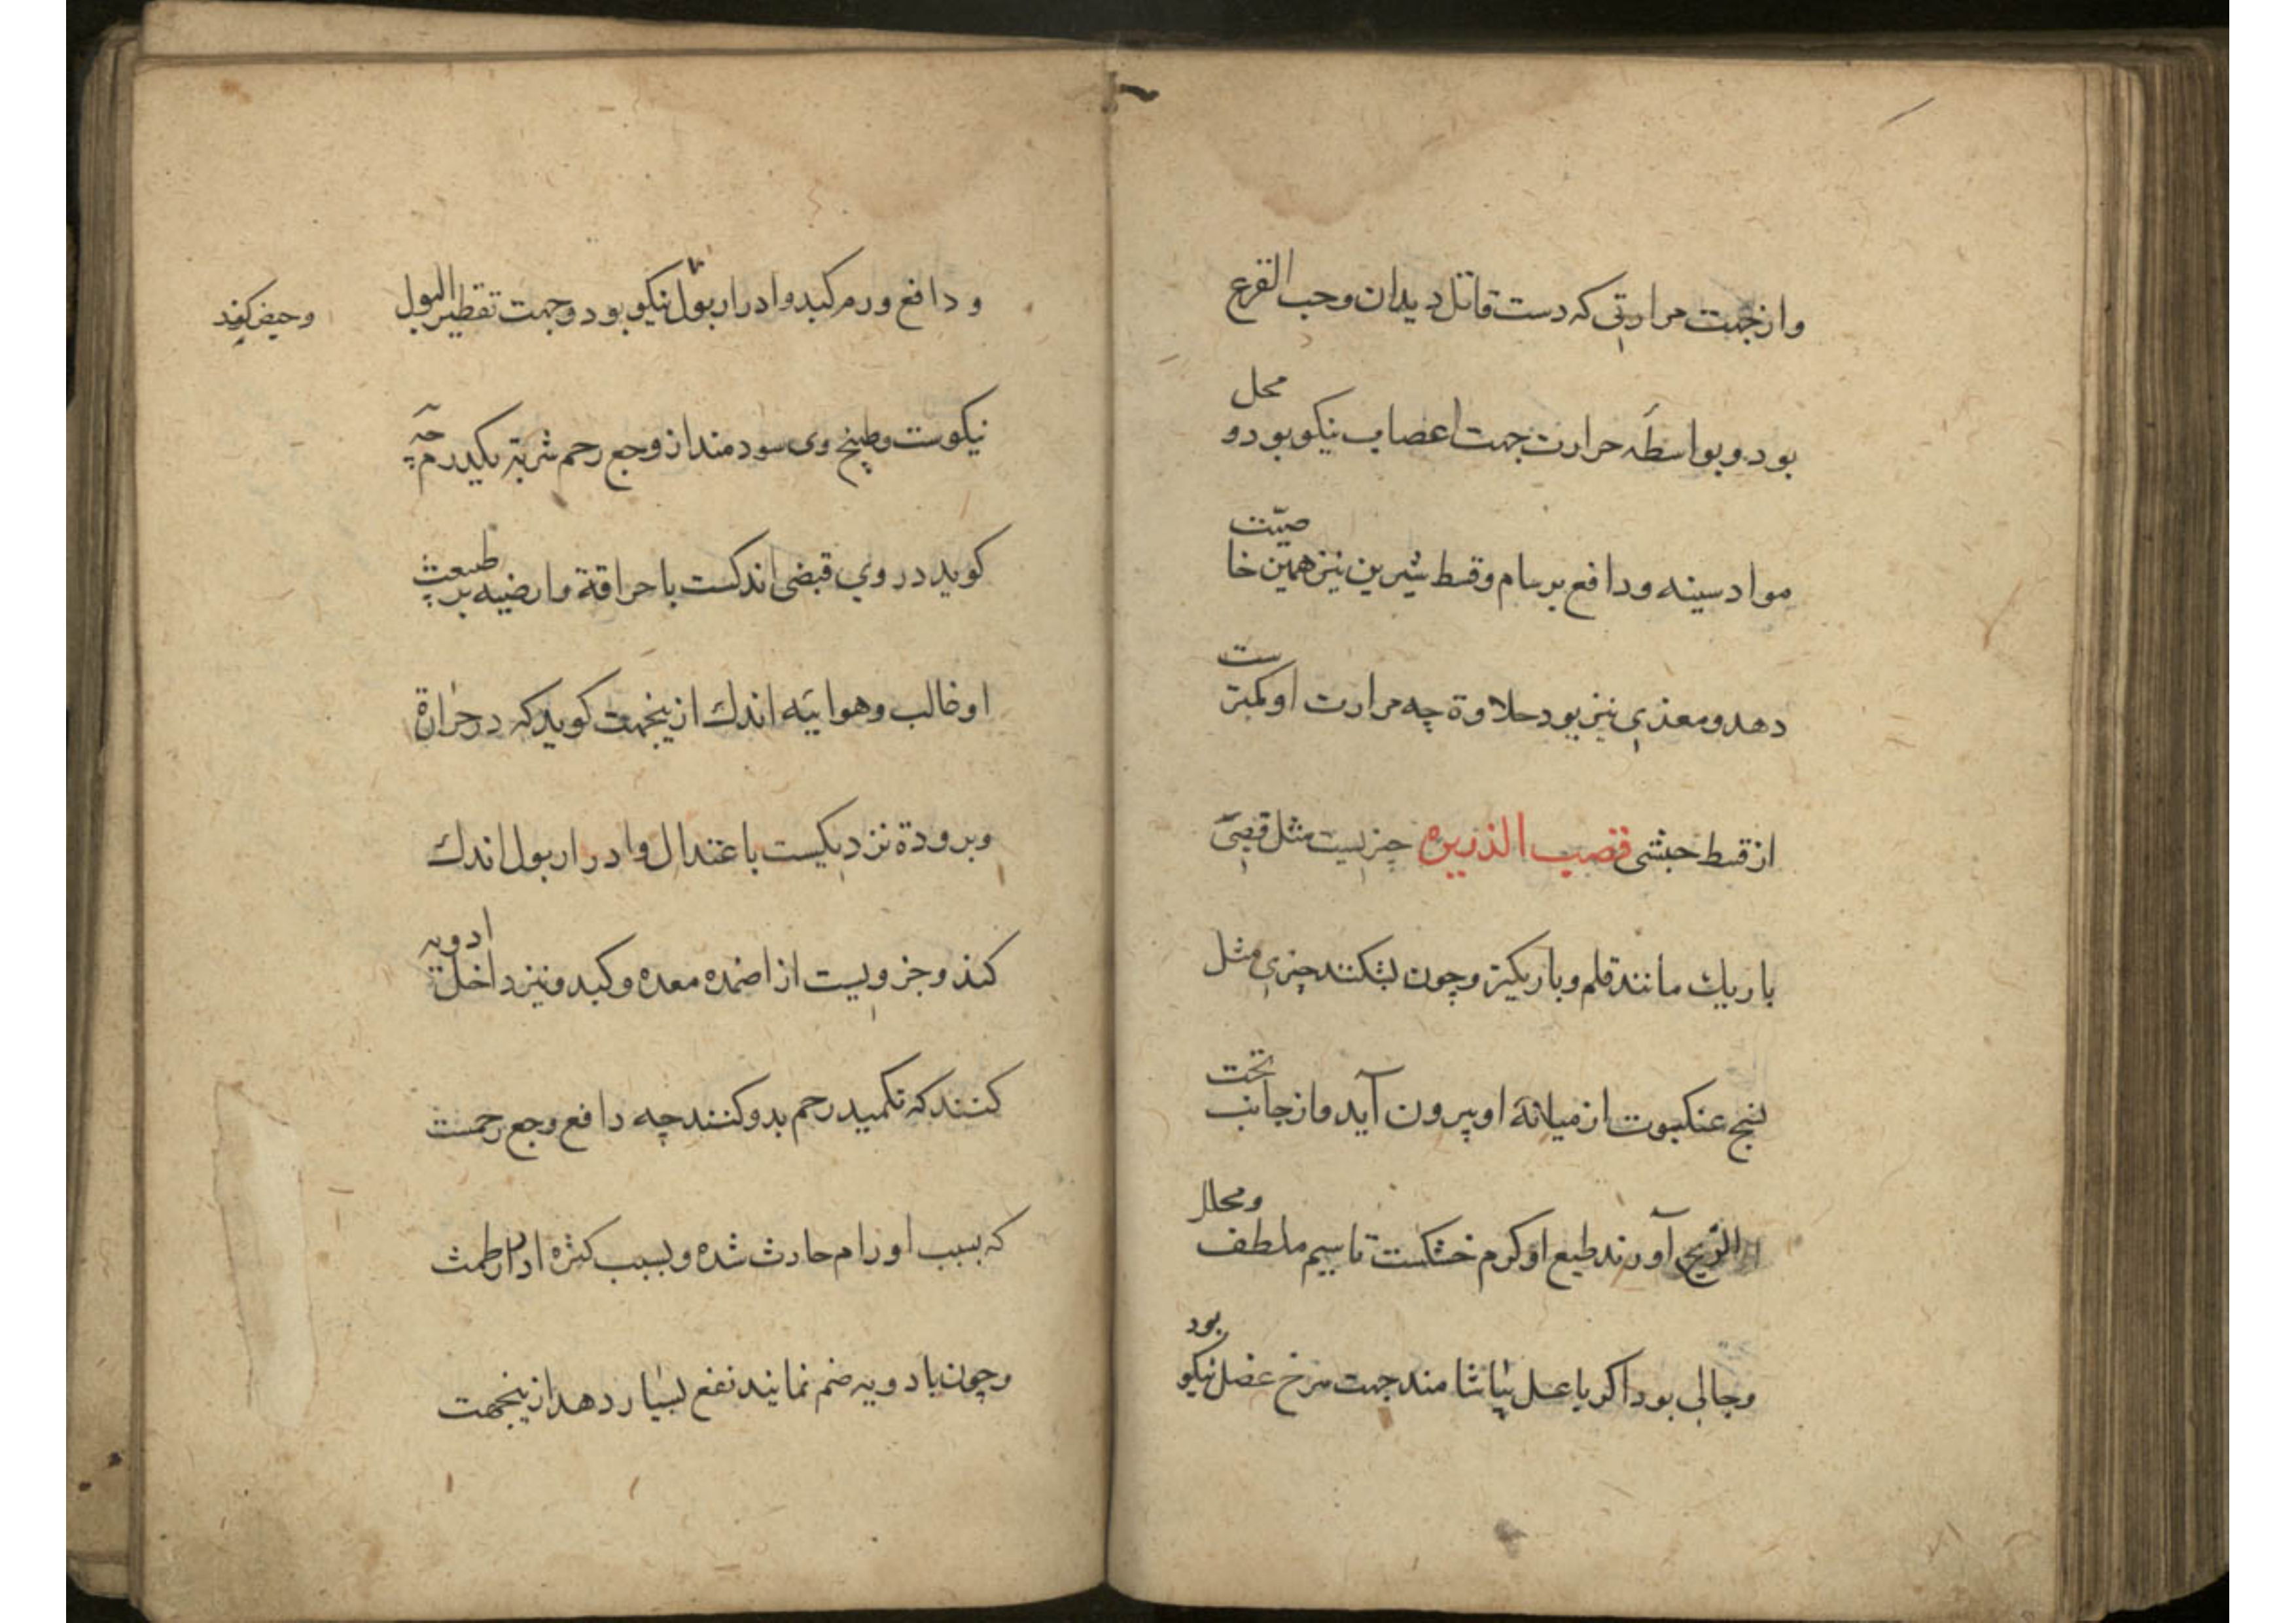 وازجهت مرارتی که دست قاتل دیدان وحب القرع
بود وبواسطه حرارت جهت اعصاب نیکو بود و محل
مواد سینه ودافع برسام وقسط شیرین نیز همین خاصیت
دهد ومغذی نیز بود حلاوة چه مرارت او کمترست
از قسط حبشی قصب الذریره چیزیست مثل قصبی
باریك مانند قلم وباریکتر وچون بشکنند چیزی مثل
نسج عنکبوت از میانهٔ او بیرون آید واز جانب تحت
الریح آورند طبع او کرم خشکست تا سیم ملطف ومحلل
وجالی بود اکر با عسل بیاشامند جهت عضل نیکو بود
ودافع ورم کبد وادرار بول نیکو بود وجهت تقطیر البول
وحیض کند
نیکوست وطبیخ وی سودمند از وجع رحم شربته یکدرم چه
کوید در وی قبضی اندکست با حراقة وارضیه بر طبیعت
او غالب وهواییه اندك ازینجهت کوید که در حرارة
وبرودة نزدیکست باعتدال وادرار بول اندك
کند وجزویست از اضمده معده وکبد ونیز داخل ادویه
کنند که تکمید رحم بدو کنند چه دافع وجع رحمست
که بسبب اورام حادث شده وبسبب کثره ادرار طمث
وچون با دویه ضم نمایند نفع بسیار دهد ازینجهت